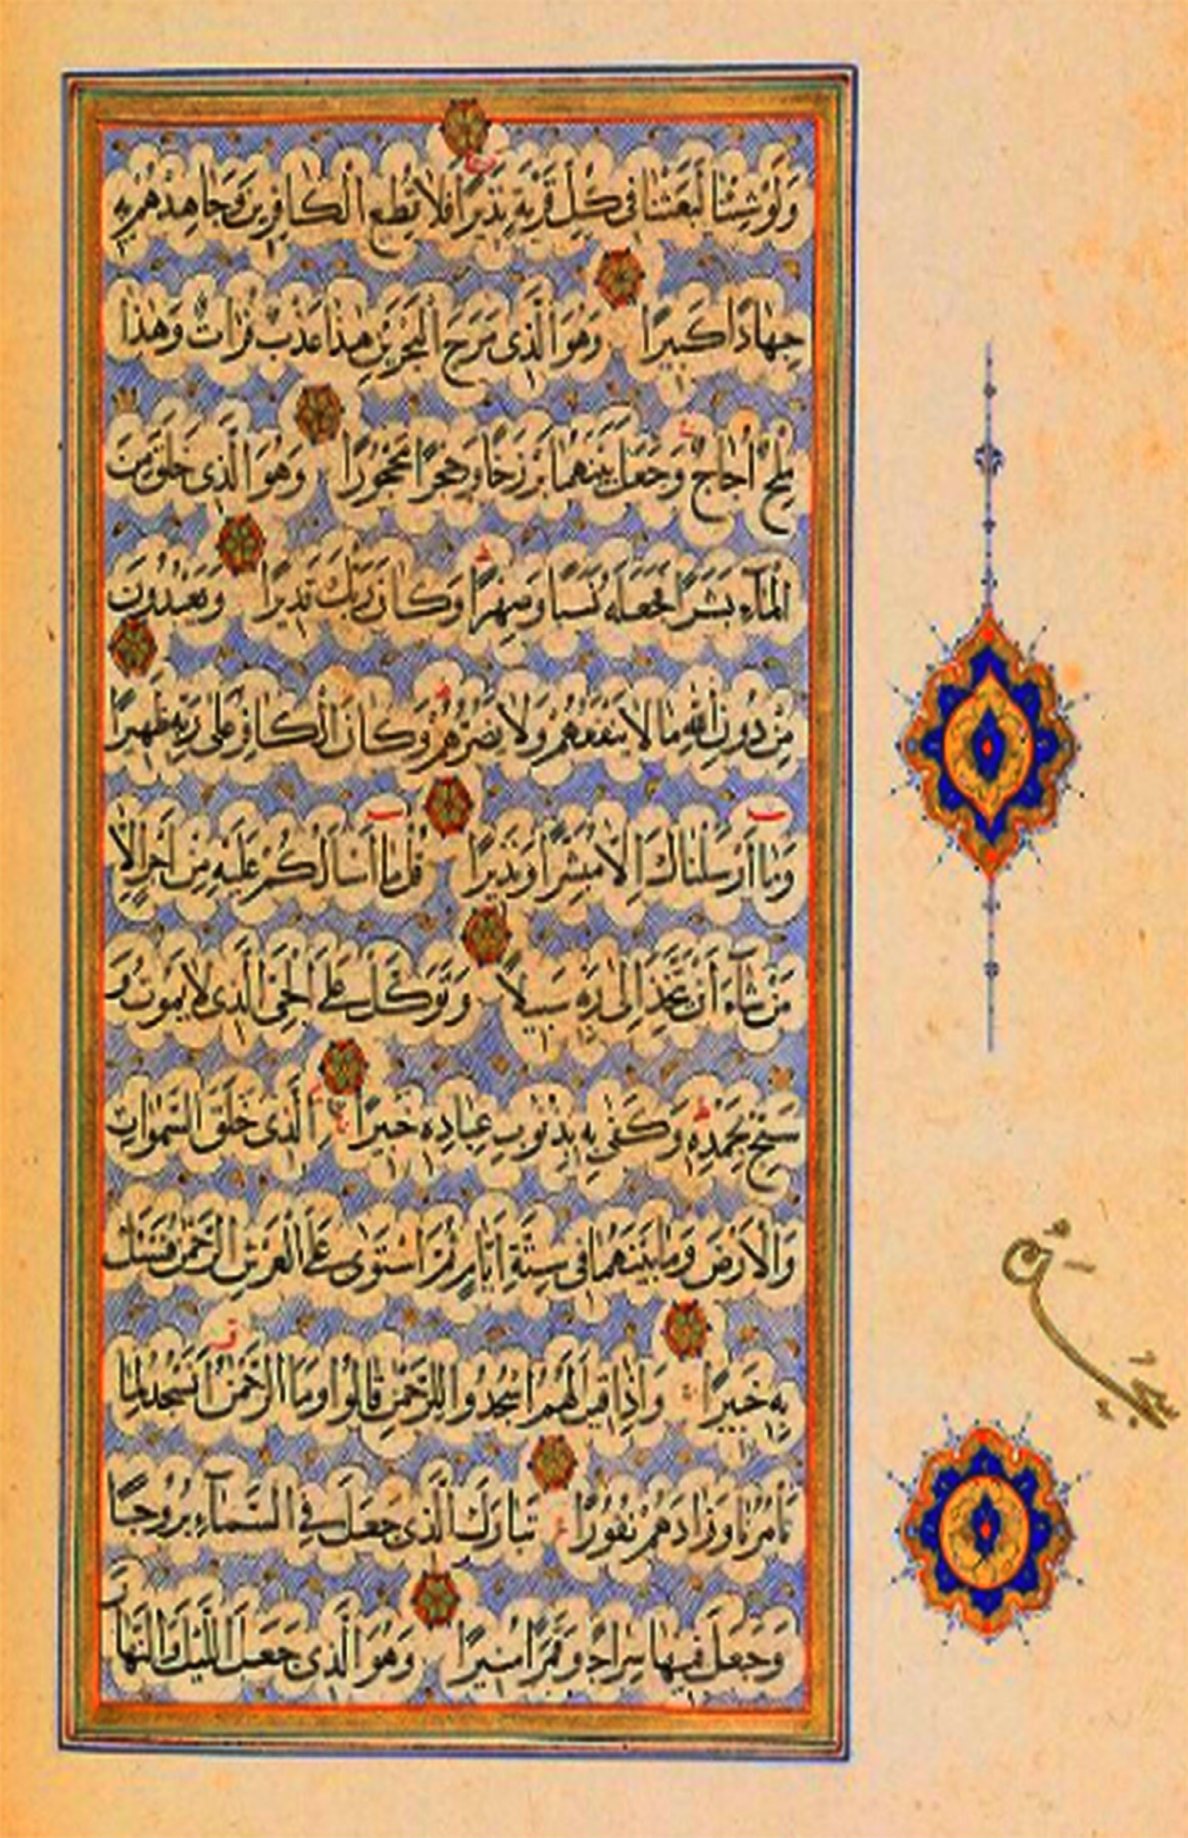 وَلَوْ شِئْنَا لَبَعَثْنَا فِي كُلِّ قَرْيَةٍ نَذِيرًا فَلَا تُطِعِ الْكَافِرِينَ وَجَاهِدْهُمْ بِهِ
جِهَادًا كَبِيرًا وَهُوَ الَّذِي مَرَجَ الْبَحْرَيْنِ هَذَا عَذْبٌ فُرَاتٌ وَهَذَا
مِلْحٌ أُجَاجٌ وَجَعَلَ بَيْنَهُمَا بَرْزَخًا وَحِجْرًا مَحْجُورًا وَهُوَ الَّذِي خَلَقَ مِنَ
الْمَاءِ بَشَرًا فَجَعَلَهُ نَسَبًا وَصِهْرًا وَكَانَ رَبُّكَ قَدِيرًا وَيَعْبُدُونَ
مِنْ دُونِ اللَّهِ مَا لَا يَنْفَعُهُمْ وَلَا يَضُرُّهُمْ وَكَانَ الْكَافِرُ عَلَى رَبِّهِ ظَهِيرًا
وَمَا أَرْسَلْنَاكَ إِلَّا مُبَشِّرًا وَنَذِيرًا قُلْ مَا أَسْأَلُكُمْ عَلَيْهِ مِنْ أَجْرٍ إِلَّا
مَنْ شَاءَ أَنْ يَتَّخِذَ إِلَى رَبِّهِ سَبِيلًا وَتَوَكَّلْ عَلَى الْحَيِّ الَّذِي لَا يَمُوتُ وَ
سَبِّحْ بِحَمْدِهِ وَكَفَى بِهِ بِذُنُوبِ عِبَادِهِ خَبِيرًا الَّذِي خَلَقَ السَّمَوَاتِ
وَالْأَرْضَ وَمَا بَيْنَهُمَا فِي سِتَّةِ أَيَّامٍ ثُمَّ اسْتَوَى عَلَى الْعَرْشِ الرَّحْمَنُ فَسْئَلْ
بِهِ خَبِيرًا وَإِذَا قِيلَ لَهُمُ اسْجُدُوا لِلرَّحْمَنِ قَالُوا وَمَا الرَّحْمَنُ أَنَسْجُدُ لِمَا
تَأْمُرُنَا وَزَادَهُمْ نُفُورًا تَبَارَكَ الَّذِي جَعَلَ فِي السَّمَاءِ بُرُوجًا
وَجَعَلَ فِيهَا سِرَاجًا وَقَمَرًا مُنِيرًا وَهُوَ الَّذِي جَعَلَ اللَّيْلَ وَالنَّهَارَ